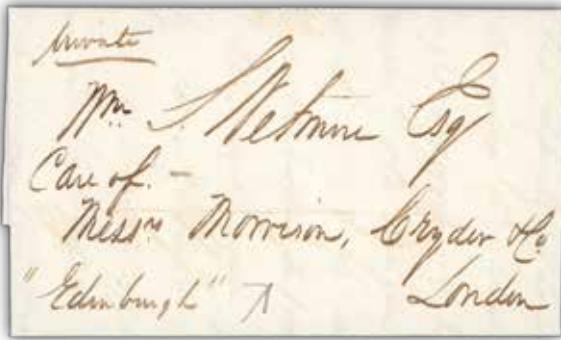 Private
Wm. S. Wetmore Esq
Care of. -
Messrs Morrison, Cryder & Co.
"Edinburgh" London